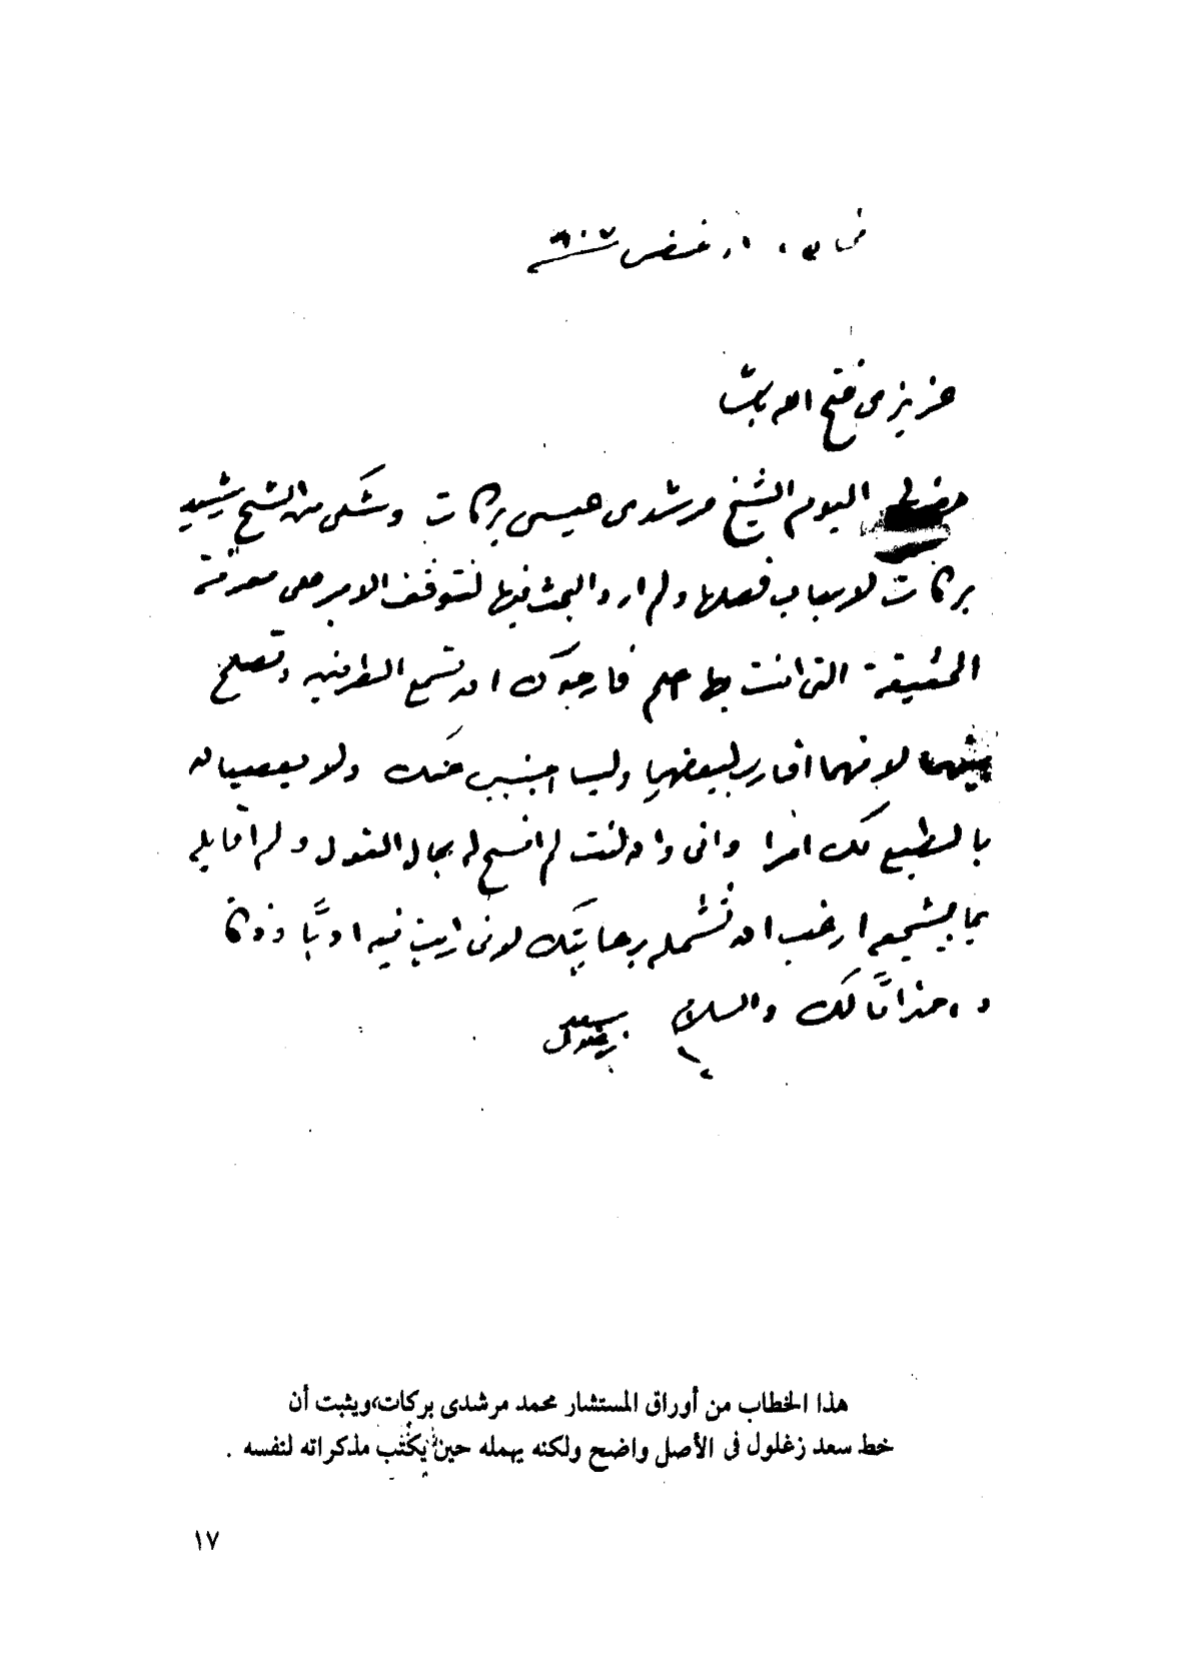 اغسطس ٩٠٧
عزيزى فتح الله بك
حضر لى اليوم الشيخ مرشدى عيسى بركات وشكى من الشيخ رشيد
بركات لاسباب فصلها ولم ارد البحث فيها لتوقف الامر على معرفة
الحقيقة التى انت بها اعلم فارجوك ان تسمع الطرفين وتصلح
بينهما لانهما اقارب لبعضهما وليسا اجنبيين عنك ولا يعصيان
بالطبع لك امرا وانى وان كنت لم افسح له مجال القول ولم اقابله
بما يشجعه ارغب ان تشمله برعايتك لانى رايت فيه ادبًا وذكا
واحترامًا لك والسلام
سعد
زغلول
هذا الخطاب من أوراق المستشار محمد مرشدى بركات، ويثبت أن
خط سعد زغلول فى الأصل واضح ولكنه يهمله حين يكتب مذكراته لنفسه .
١٧